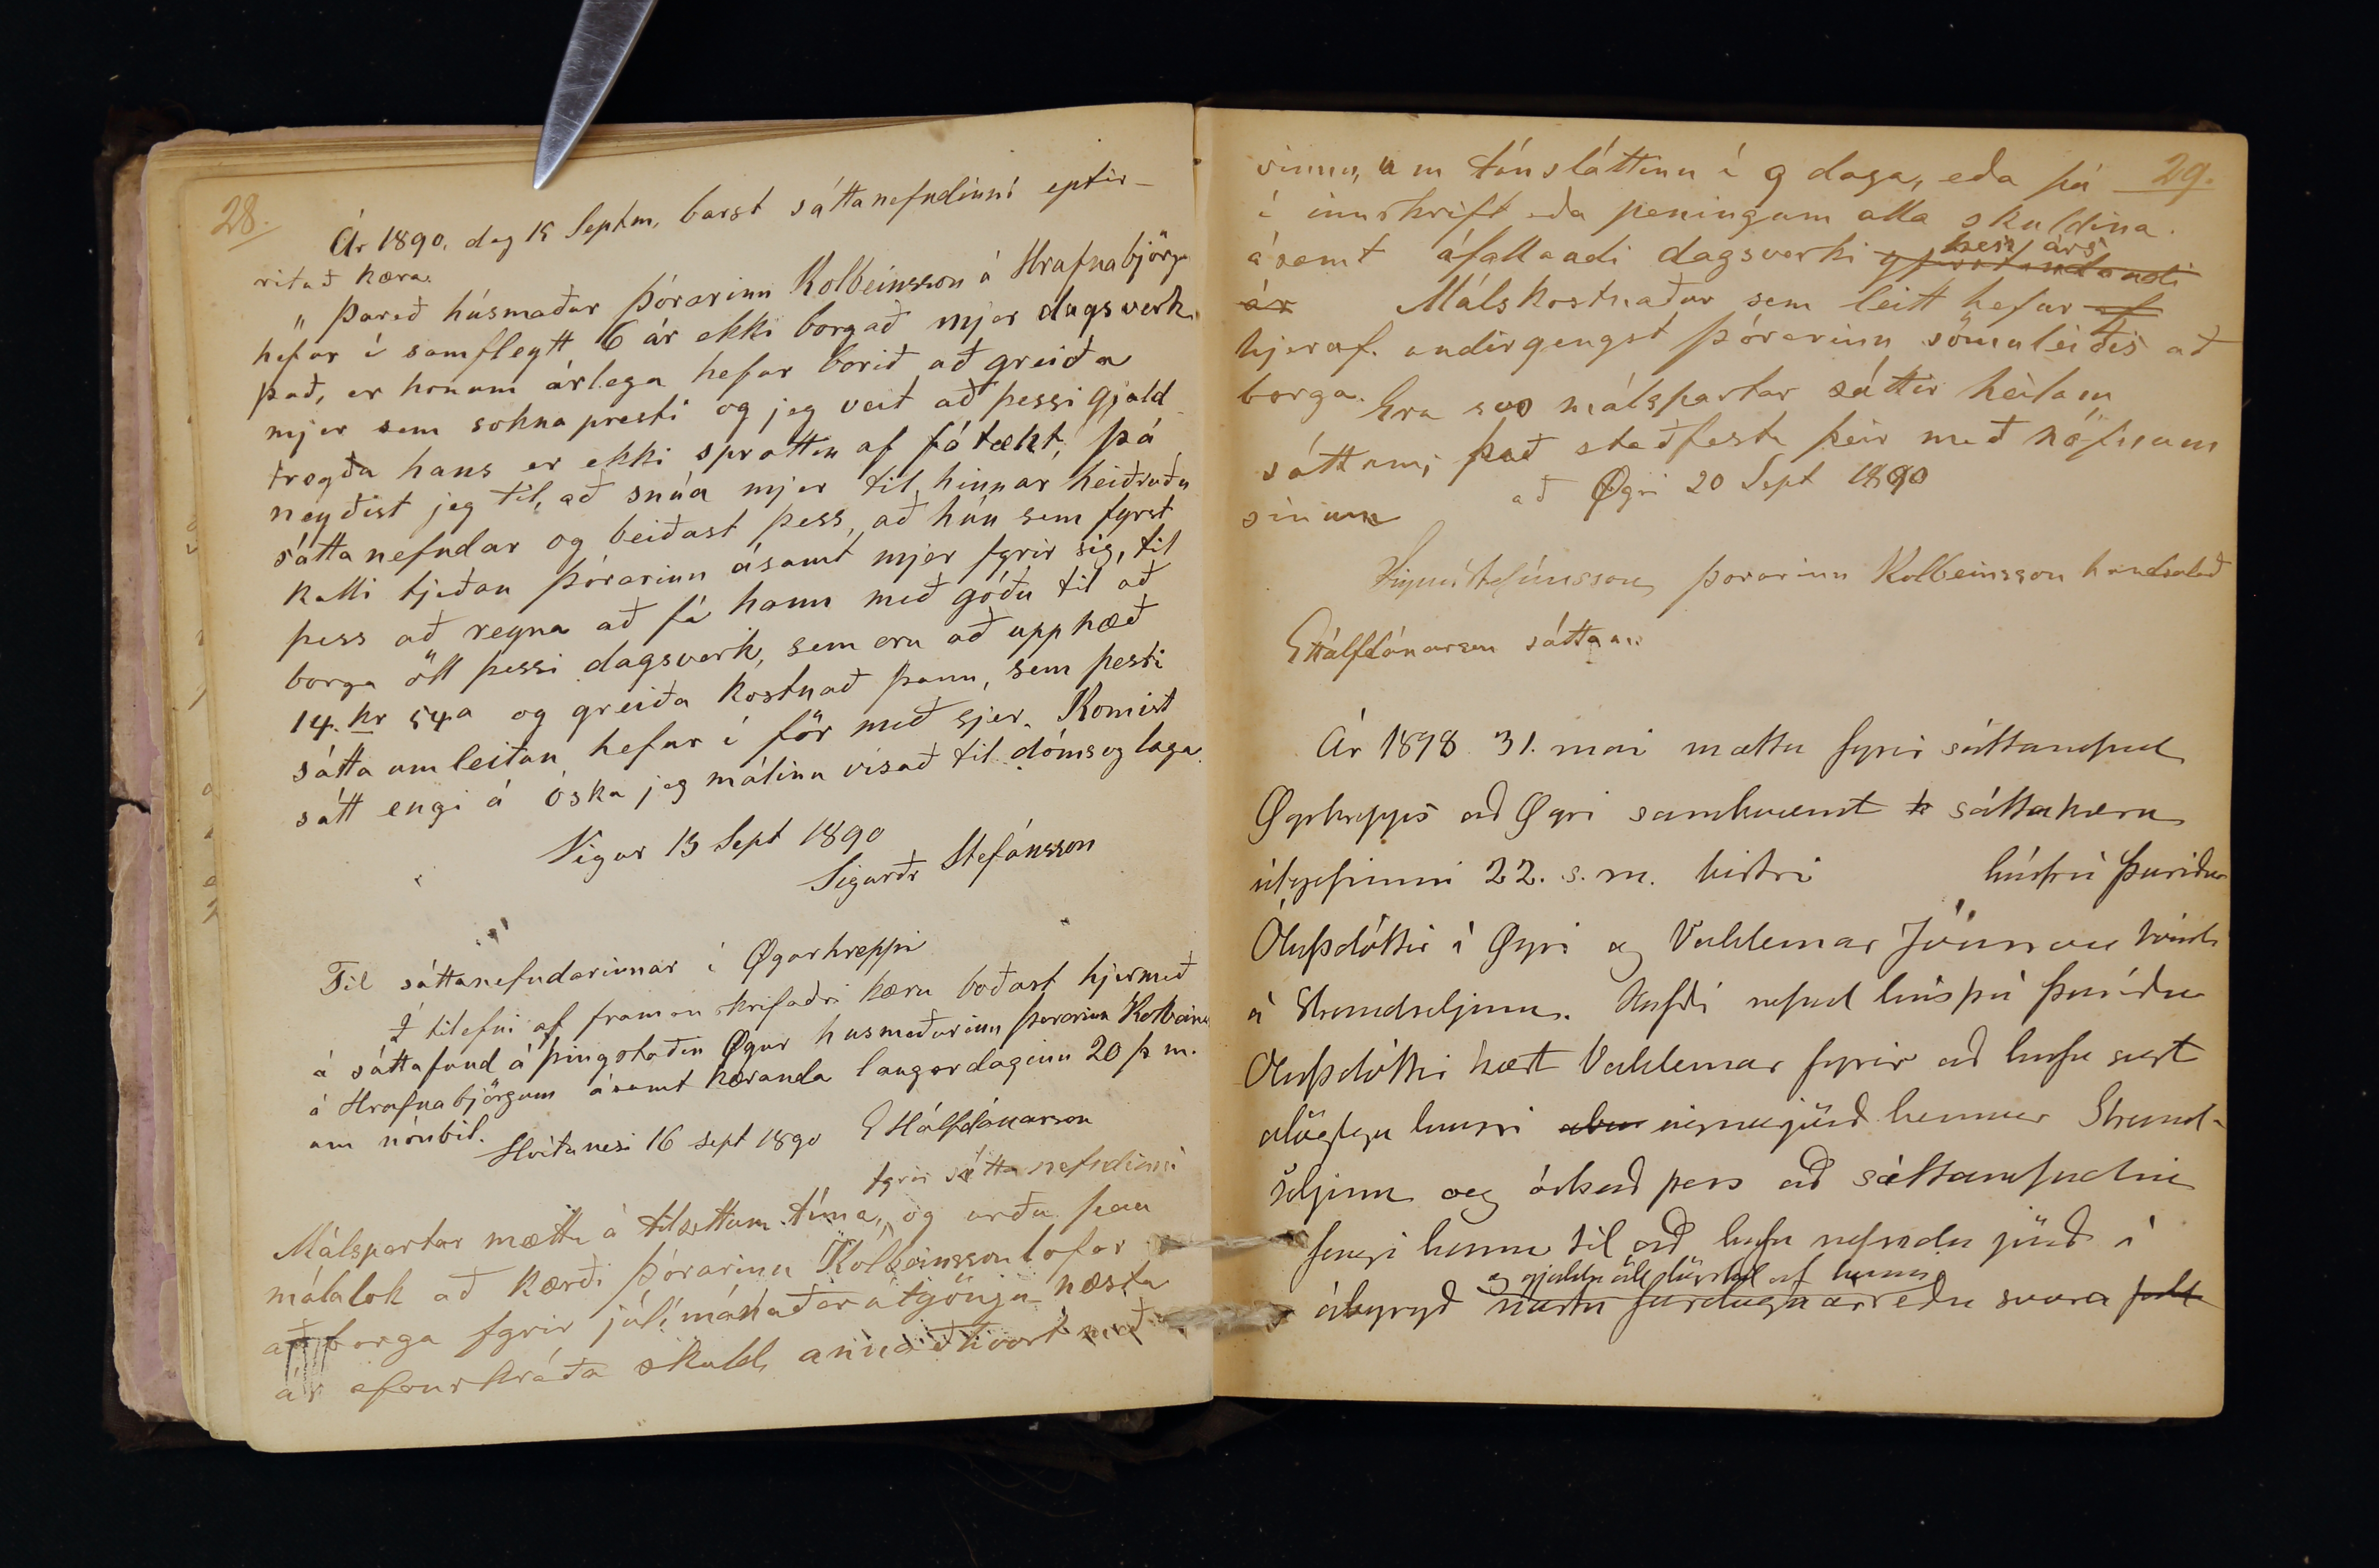 28.
Ár 1890, dag 15 Septm, barst sáttanefndinni eptir-
ritað kæra.
„Þareð húsmaður Þórarinn Kolbeinsson á Hrafnabjörgu
hefur í samfleytt 6 ár ekki borgað mjer dagsverk
það, er honum árlega hefur borið að greiða
mjer sem sóknapresti og jeg veit að þessi gjald-
tregða hans er ekki sprottin af fátækt, þá
neyðist jeg til, að snúa mjer til hinnar heiðruðu
sáttanefndar og beiðast þess, að hún sem fyrst
kalli tjeðan Þórarinn ásamt mjer fyrir sig, til
þess að reyna að fá hann með góðu til að
borga öll þessi dagsverk, sem eru að upphæð
14 kr 54 a og greiða kostnað þann, sem þesti
sátta umleitan hefur í för með sjer. Komist
sátt engi á óska jeg málinu vísað til dóms og laga.
Vigur 15 Sept 1890
Sigurðr Stefánsson
Til sáttanefndarinnar í Øgurhreppi
Í tilefni af framan skrifaðri kæru boðast hjermeð
á sáttafund á þingstaðin Øgur husmaðurinn Þorarinn Kolbeins
á Hrafnabjörgum ásamt kæranda laugardaginn 20 þ m.
um nónbil.
Hvítanesi 16 sept 1890 E Hálfdánarson
fyrir sáttanefndinni
Málspartar mættu á tilsettum tíma, og urðu þau
málalok að kærði Þórarinn Kolbeinsson lofar
að borga fyrir júlímánaðar útgöngu næsta
ár ofanskráða skuld, annaðhvort með
29.
vinnu, um túnsláttinn í 9 daga, eða þá
í innskrift eða peningum alla skuldina.
ásamt áfallandi dagsverki yfirstandandi þess árs
ár Málskostnaður sem leitt hefur af
hjeraf. undirgengst Þórarinn sömuleiðis að
borga. Eru svo málspartar sáttir heilum
sáttum; það staðfesta þeir með nöfnum
sínum að Øgri 20 Sept 1890
Sigurðr Stefánsson Þorarinn Kolbeinsson handsalað
E Hálfdánarson sáttam
Ár 1898 31. mai mættu fyrir sáttanefnd
Øgurhrepps að Øgri samkvæmt k sáttakæru
útgefinni 22. s. m. húsfrú Þuríður
Ólafsdóttir í Øgri og Valdemar Jónsson bóndi
á Strandseljum. Hafði nefnd húsfrú Þuríður
Ólafsdóttir kært Valdemar fyrir að hafa sagt
ólöglega lausri aben eignarjörð hennar Strand-
seljum og óskað þess að sáttanefndin
fengi hann til að hafa nefnda jörð í
og gjalda öll skil af henni
ábyrgð næsta fardagaár eða svara full